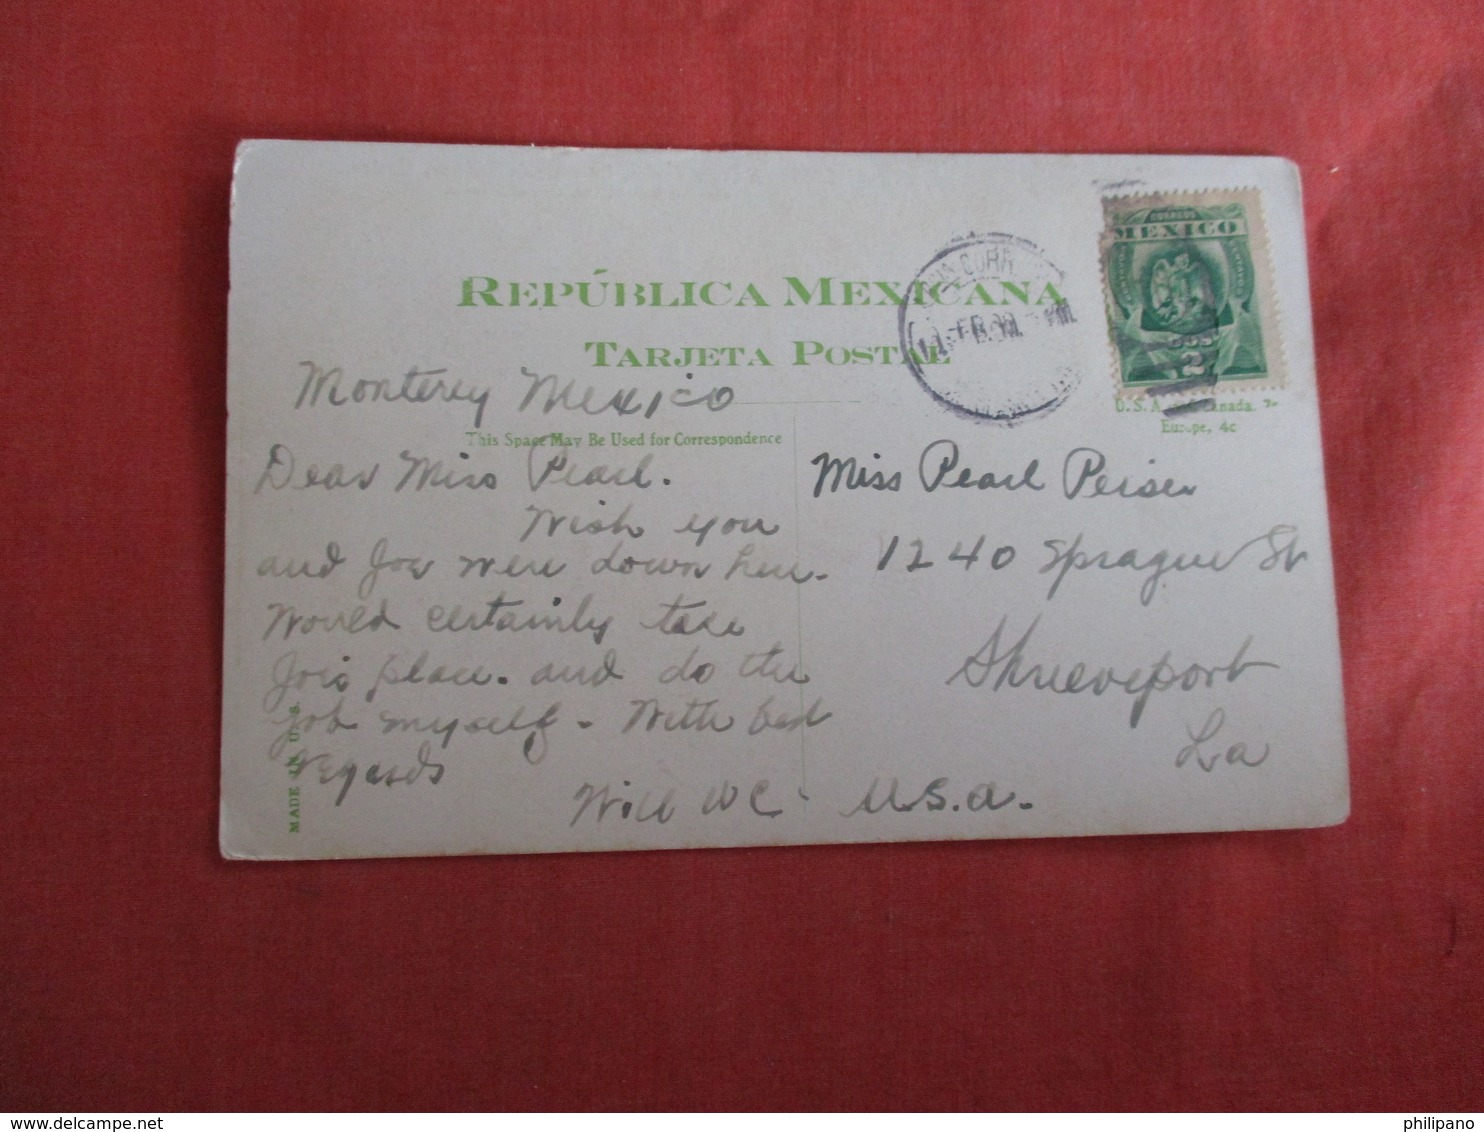 REPÚBLICA MEXICANA
TARJETA POSTAL
CORREOS
MEXICO
2
FEB.
Monterey Mexico
This Space May Be Used for Correspondence
U.S.A. Canada, 2c
Europe, 4c
Dear Miss Pearl.
Wish you
and Joe were down here.
Would certainly take
Jois place. and do the
job myself - With best
regards
Will WC
Miss Pearl Peiser
1240 Sprague St
Shreveport
La
U.S.A.
MADE IN U.S.
philipano